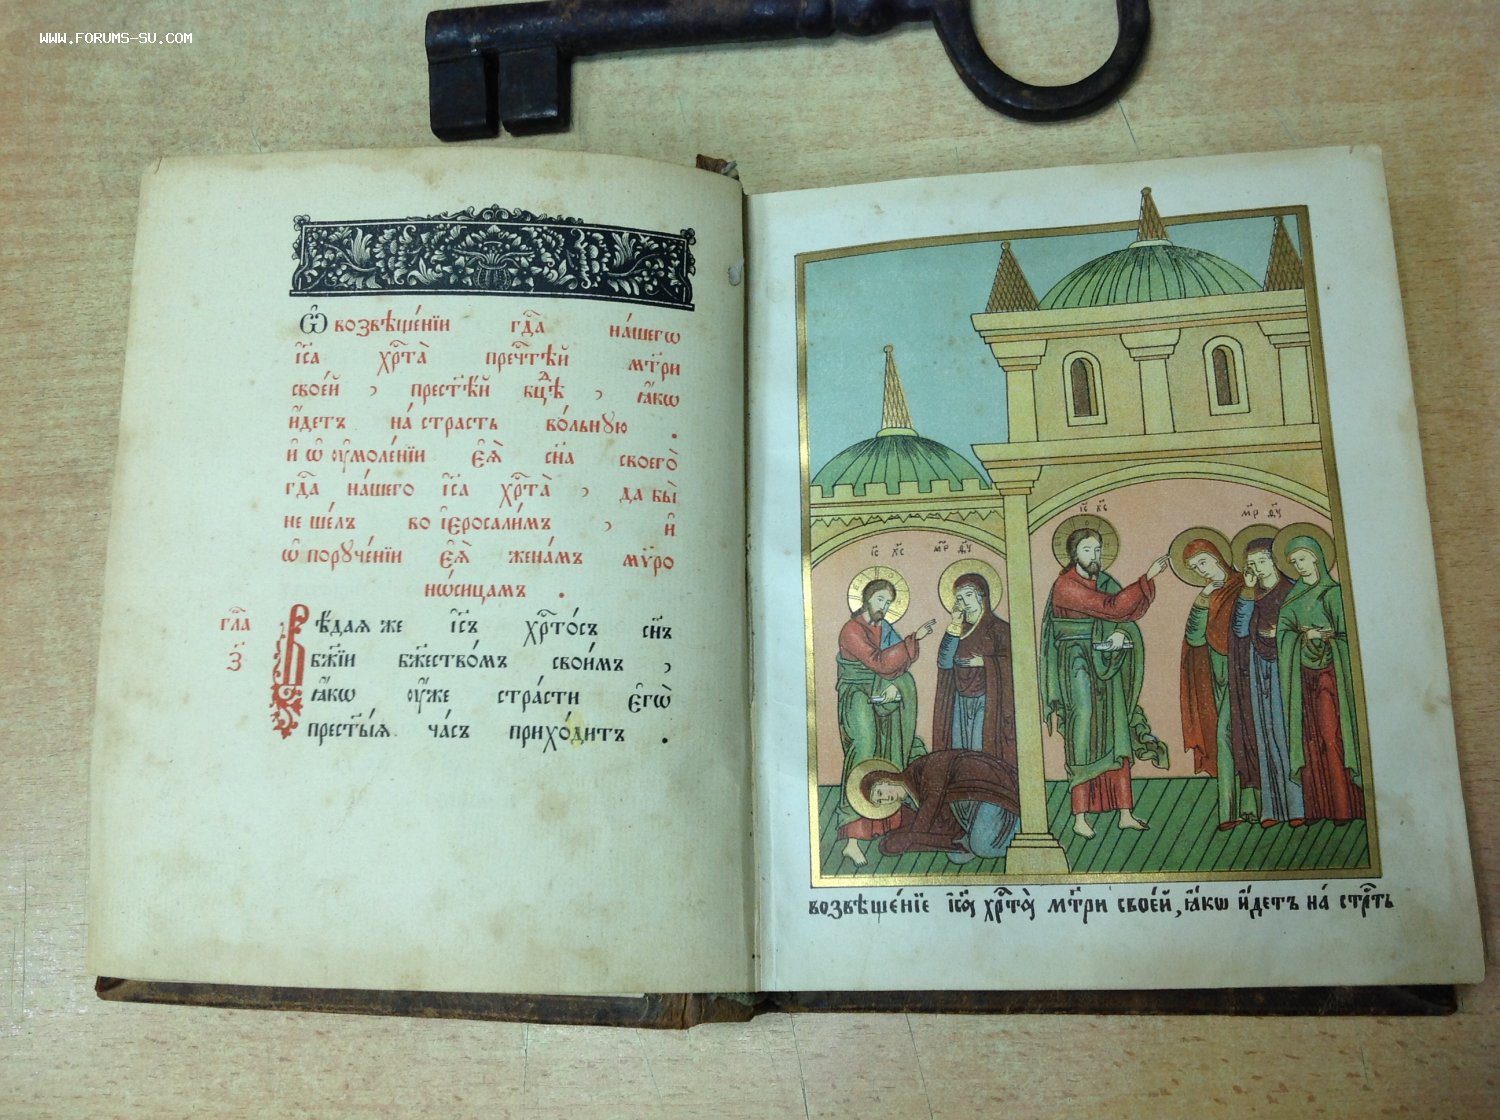 WWW.FORUMS-SU.COM
Ѽ возвѣще́нїи гдⷭ҇а на́шегѡ
і҆сⷭ҇а хрⷭ҇та̀ пречтⷭ҇ѣй мт҃ри
своє́й , прест҃ѣ́й бцⷣѣ , ꙗ҆́кѡ
и҆́детъ на́ страсть во́льнꙋю .
и҆ ѡ ᲂу҆моле́нїи є҆ѧ̀ сн҃а своегѻ̀
гдⷭ҇а на́шего і҆сⷭ҇а хрⷭ҇та̀ , да бы̀
не ше́лъ во і҆єросали́мъ , и҆
ѡ порꙋче́нїи є҆ѧ̀ жена́мъ мѵ́ро
нѡ́сицамъ .
гла҃
з҃
Вѣ́даѧ же і҆сⷭ҇ъ хрⷭ҇то́съ сн҃ъ
бж҃їи бж҃ество́мъ свои́мъ ,
ꙗ҆́кѡ ᲂу҆́же стра́сти є҆гѡ̀
прест҃ы́ѧ ча́съ прихо́дитъ .
і҃с х҃с
м҃р ѳ҃ꙋ
і҃с х҃с
м҃р ѳ҃ꙋ
возвѣще́нїе і҆сⷭ҇ꙋ хрⷭ҇тꙋ̀ мт҃ри своє́й, ꙗ҆́кѡ и҆́детъ на́ стрⷭ҇ть